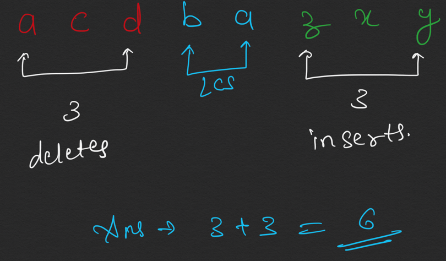 a c d b a z x y
3 LCS 3
deletes inserts.
Ans → 3 + 3 = 6